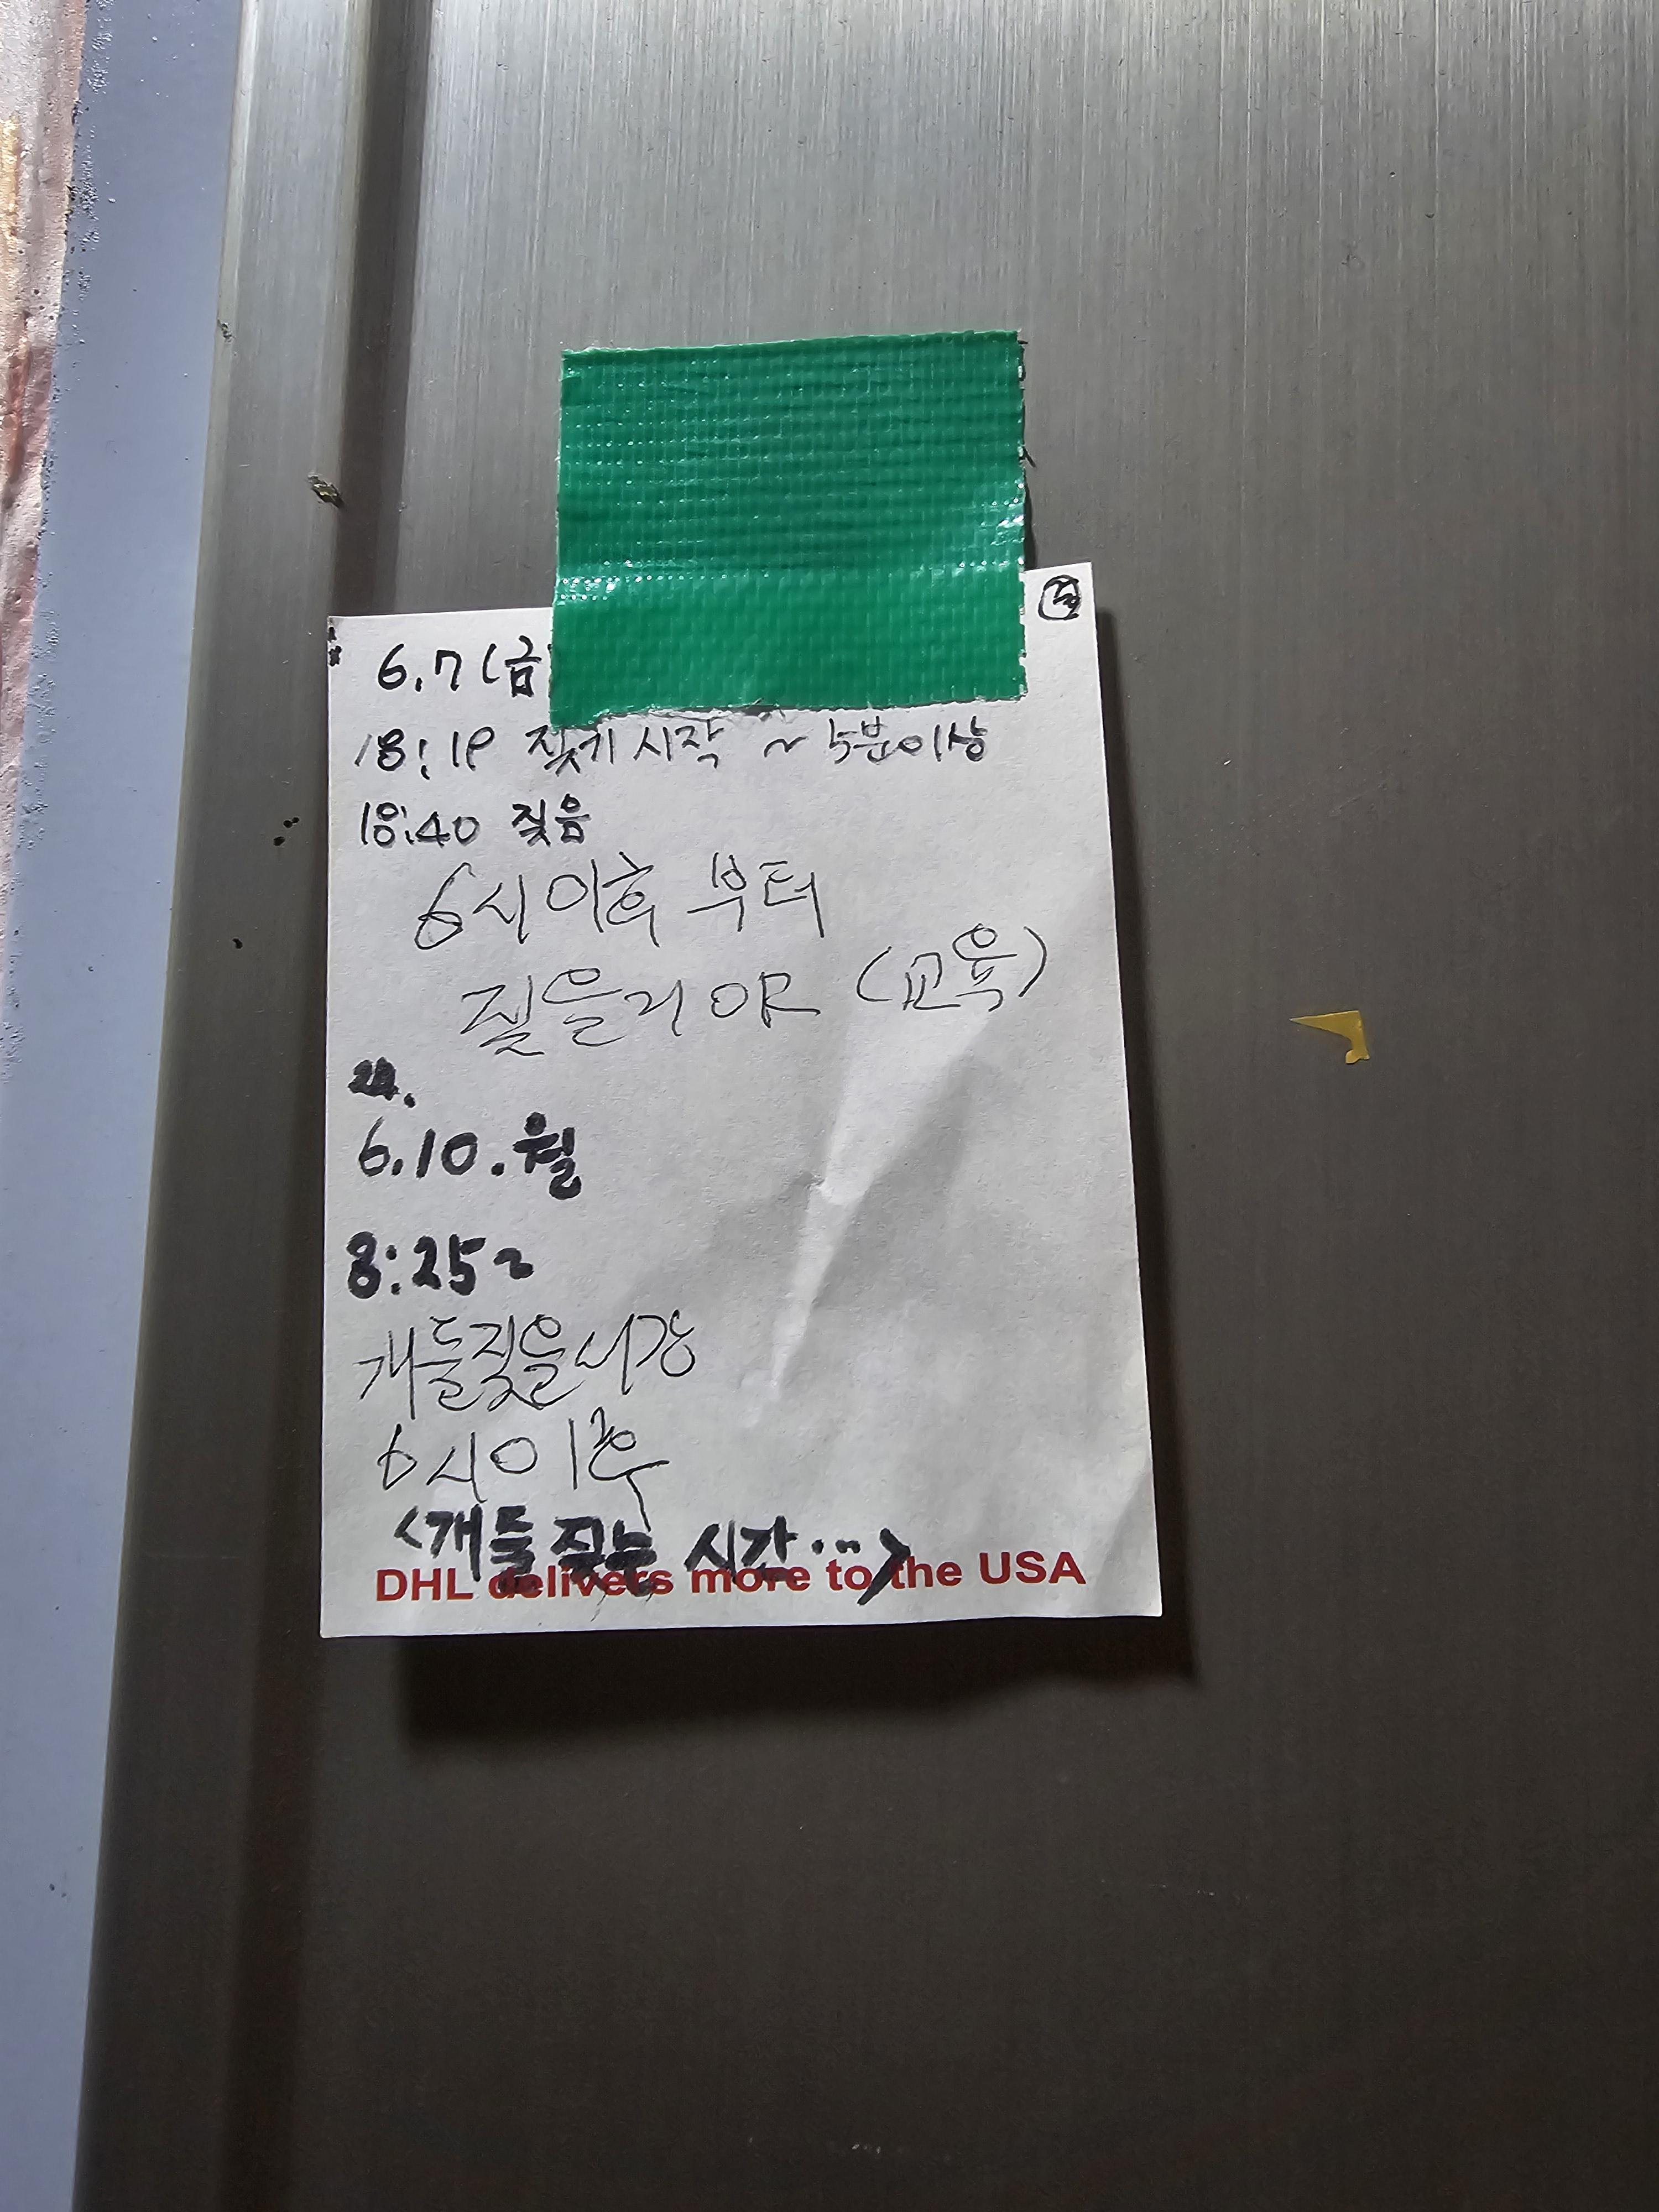 6.7(금
18:19 짖기 시작 ~ 5분이상
18:40 짖음
6시 이후 부터
(교육)
6.10.월
8:25~
개들짖을시강
6시이후
<개들 짖는 시간...>
DHL delivers more to the USA